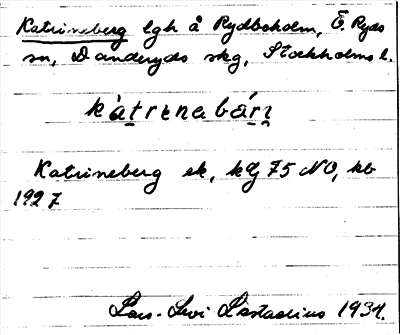 Katrineberg lgh å Rydboholm, Ö. Ryds
sn, Danderyds skg, Stockholms l.
kàtrɩnebár̨ı
Katrineberg ek, kbl 75 NO, kb
1927
Lars-Levi Læstadius 1934.